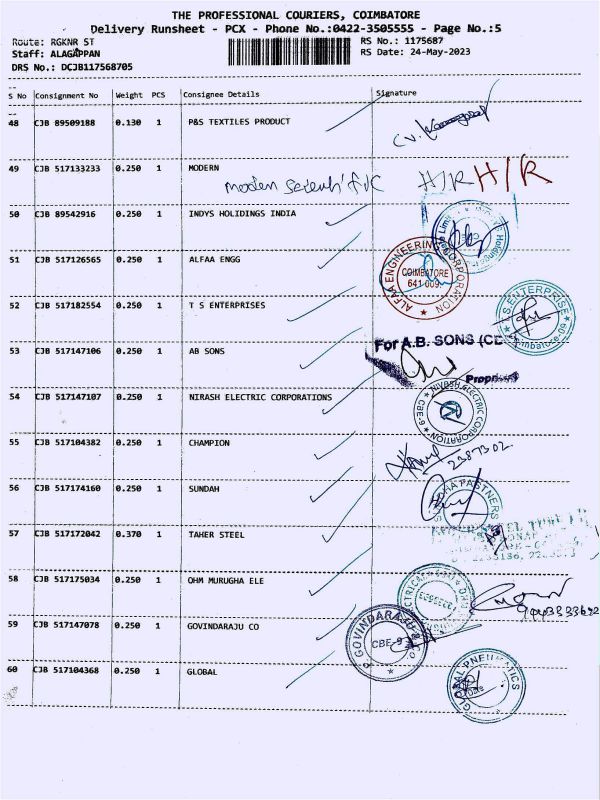 THE PROFESSIONAL COURIERS, COIMBATORE
Delivery Runsheet - PCX - Phone No.:0422-3505555 - Page No.:5
Route: RGKNR ST RS No.: 1175687
Staff: ALAGAPPAN RS Date: 24-May-2023
DRS No.: DCJB117568705
S No Consignment No Weight PCS Consignee Details Signature
48 CJB 89509188 0.130 1 P&S TEXTILES PRODUCT
49 CJB 517133233 0.250 1 MODERN
modern scientific H/R H/R
50 CJB 89542916 0.250 1 INDYS HOLIDINGS INDIA
51 CJB 517126565 0.250 1 ALFAA ENGG
ALFAA ENGINEERING CORPORATION
COIMBATORE
641 009
52 CJB 517182554 0.250 1 T S ENTERPRISES
T.S.ENTERPRISE
Coimbatore-09
53 CJB 517147106 0.250 1 AB SONS
For A.B. SONS (CBE
54 CJB 517147107 0.250 1 NIRASH ELECTRIC CORPORATIONS
ELECTRIC CORPORATION CBE-9
55 CJB 517104382 0.250 1 CHAMPION
2387302
56 CJB 517174160 0.250 1 SUNDAH
PARTNERS
57 CJB 517172042 0.370 1 TAHER STEEL
58 CJB 517175034 0.250 1 OHM MURUGHA ELE
59 CJB 517147078 0.250 1 GOVINDARAJU CO
GOVINDARAJU & CO
CBE-9
60 CJB 517104368 0.250 1 GLOBAL
GLOBAL PNEUMATICS